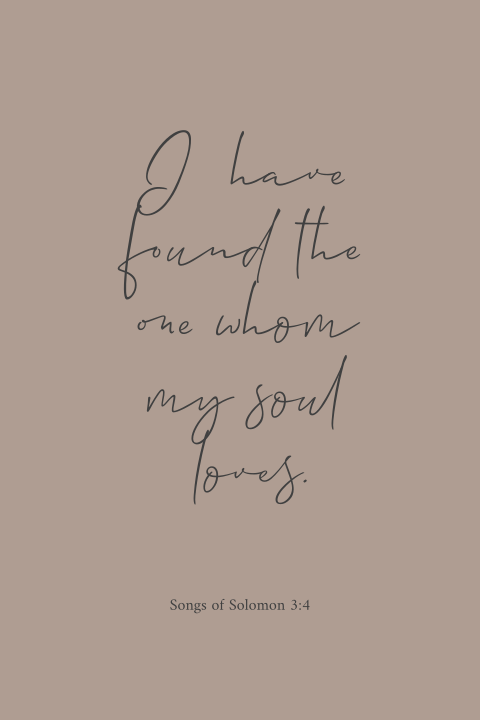 I have
found the
one whom
my soul
loves.
Songs of Solomon 3:4